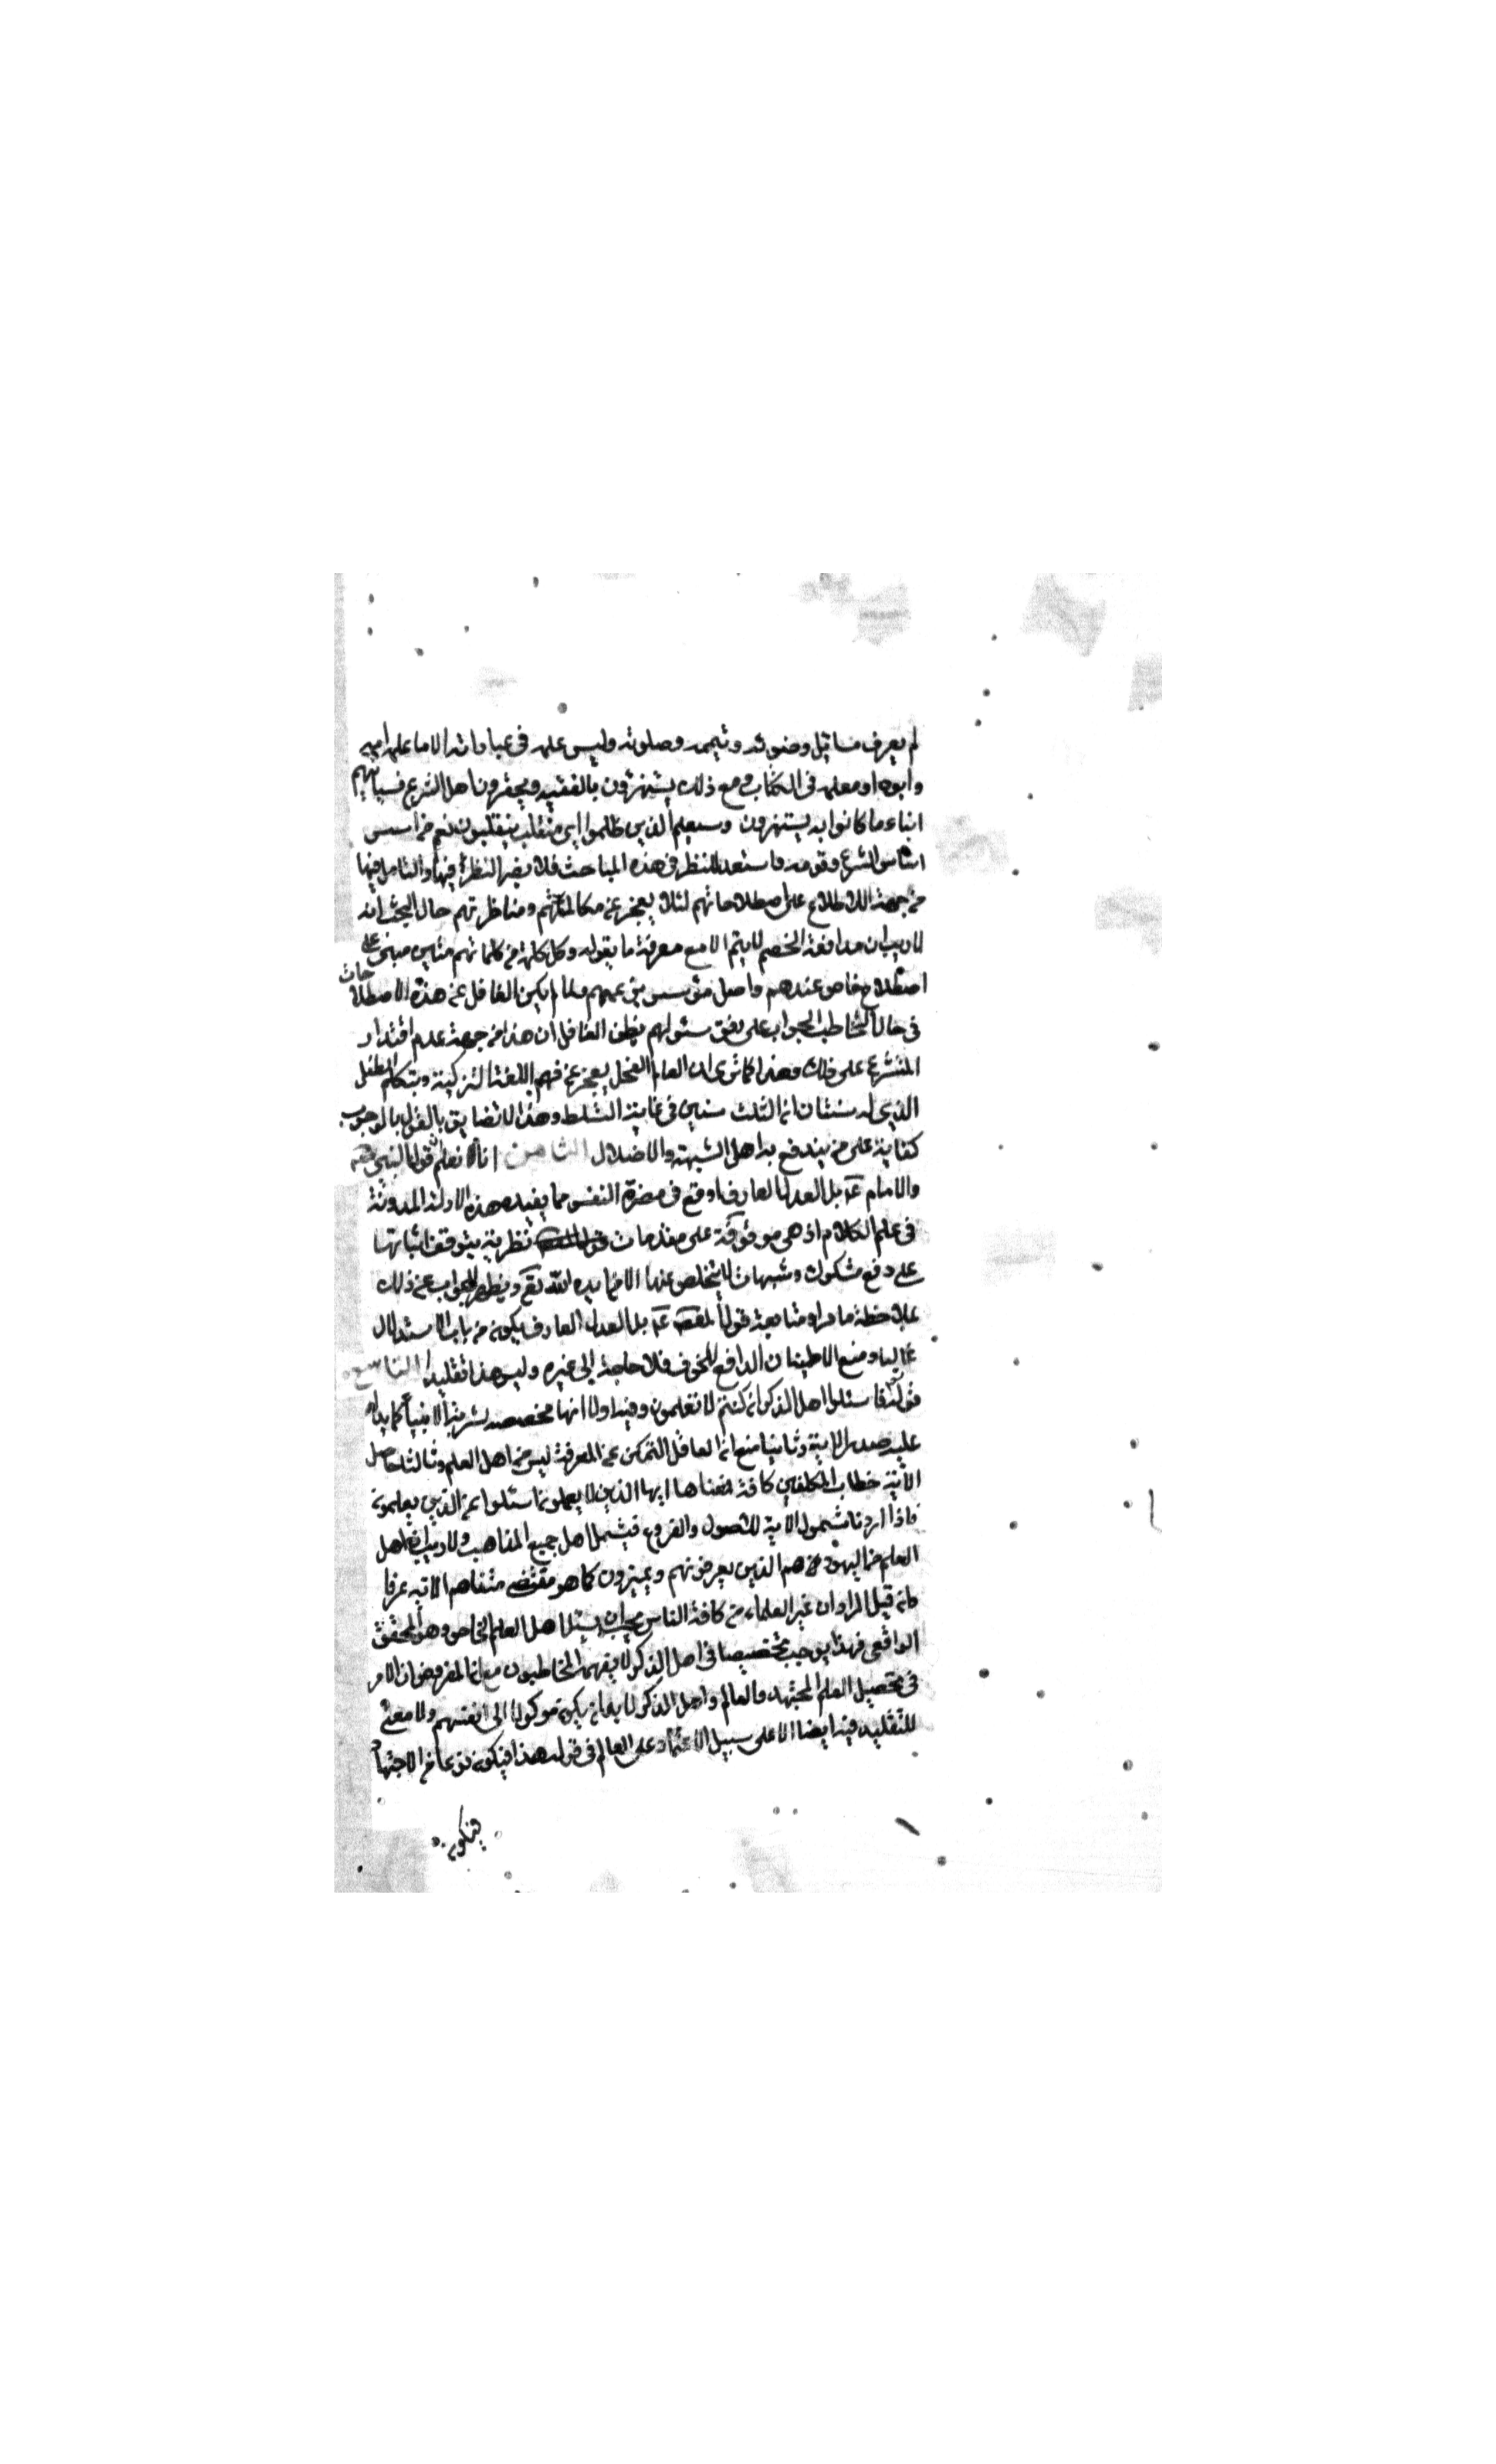 لم يعرف مسائل وضوئه وتيممه وصلوته وليس علمه في عباداته الا ما علمه امه
وابوه او معلمه في الكتاب ومع ذلك يستهزؤن بالفقيه ويحقرون اهل الشرع فسيأتيهم
انباء ما كانوا به يستهزؤن وسيعلم الذين ظلموا اي منقلب ينقلبون نعم من اسس
اساس الشرع وقومه واستعد للنظر في هذه المباحث فلا يضر النظر فيها والتامل فيها
من جهة الاطلاع على اصطلاحاتهم لئلا يعجز عن مكالمتهم ومناظرتهم حال البحث اذ
لا ريب ان مدافعة الخصم لا يتم الا مع معرفة ما يقوله وكل كلمة من كلماتهم مبنى على
اصطلاح خاص عندهم واصل مؤسس من عمهم فلما لم يكن الغافل عن هذه الاصطلاحات
في حال التخاطب الجواب على وفق سئولهم يظن الغافل ان هذا من جهة عدم اقتدار
المتشرع على ذلك وهذا كما ترى ان العالم الفحل يعجز عن فهم اللغة التركية ويتكلم الطفل
الذي له سنتان او الثلث سنين في غاية التسلط وهذا لا تضايق بالقول بالوجوب
كفاية على من يندفع به اهل الشبهة والاضلال الثامن انا لا نعلم قول النبي ص
والامام ع بل العدل العارف اوقع في النفس مما يفيده هذه الادلة المدونة
في علم الكلام اذ هي موقوفة على مقدمات نظرية يتوقف اثباتها
على دفع شكوك وشبهات لا يتخلص عنها الا من ايده الله تع ويظهر الجواب عن ذلك
بملاحظة ما مر او متابعة قول المعصوم ع بل العدل العارف يكون من باب الاستدلال
غالبا ومنع الاطمينان الدافع للخوف فلا حاجة الى غيره وليس هذا تقليدا التاسع
قوله تع فاسئلوا اهل الذكر ان كنتم لا تعلمون وفيه اولا انها مخصصة بشرية الانبياء كما يدل
عليه صدر الاية وثانيا منع ان العاقل المتمكن عن المعرفة ليس من اهل العلم وثالثا حاصل
الاية خطاب المكلفين كافة فمعناها ايها الذين لا يعلمون اسئلوا عن الذين يعلمون
فاذا اردنا شمول الاية للاصول والفروع فيشمل اهل جميع المذاهب ولا ريب ان اهل
العلم من اليهود هم الذين يعرفونهم ويميزون كما هو مقتضى متفاهم الاية عرفا
فان قيل المراد ان غير العلماء من كافة الناس يجب ان يسئل اهل العلم الخاص وهو المحقق
الواقعي فهذا يوجب تخصيصا في اهل الذكر لا يفهمه المخاطبون مع ان المفروض ان الامر
في تحصيل العلم المجتهد والعالم واهل الذكر لا بد ان يكون موكولا الى انفسهم ولا معنى
للتقليد فيه ايضا الا على سبيل الاعتماد على العالم في قوله هذا فيكون نوعا من الاجتهاد
فيكون